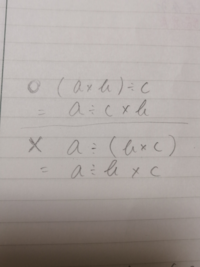 ○ (a×b)÷c
= a÷c×b
× a÷(b×c)
= a÷b×c